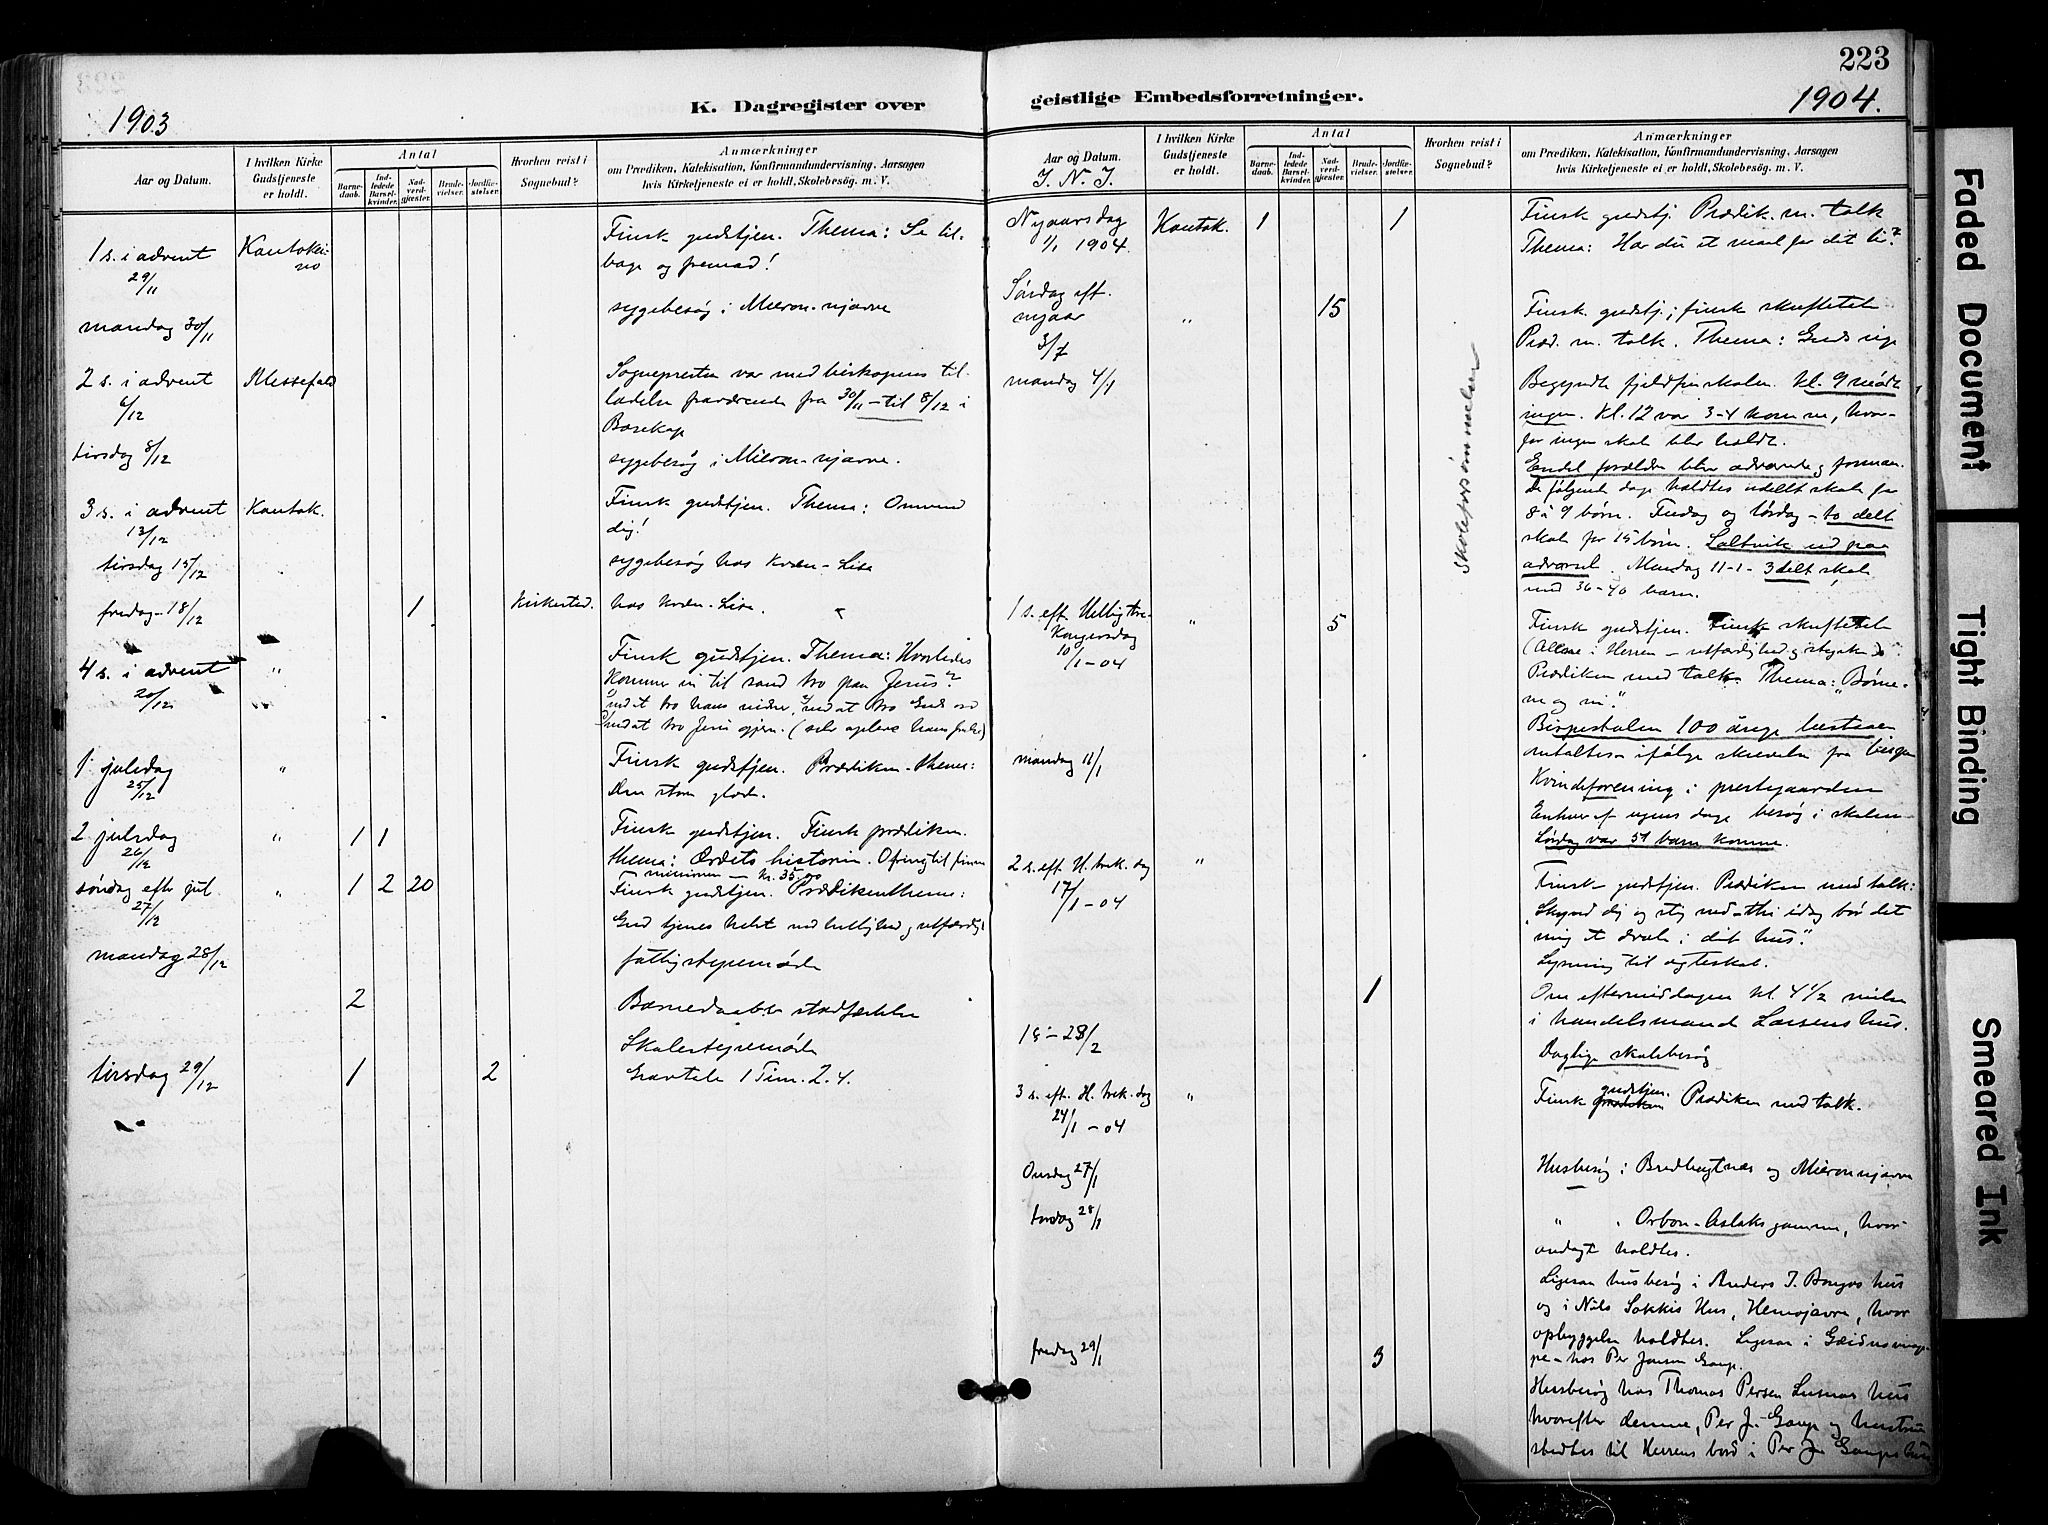 223
K. Dagregister over geistlige Embedsforretninger.
1903
1904.
Aar og Datum.
I hvilken Kirke Gudstjeneste er holdt.
Antal
Barnedaab.
Indledede Barselkvinder.
Nadverdgjæster.
Brudevielser.
Jordfæstelser.
Hvorhen reist i Sognebud?
Anmærkninger
om Prædiken, Katekisation, Konfirmandundervisning, Aarsagen
hvis Kirketjeneste ei er holdt, Skolebesøg. m. V.
1 s. i advent
29/11
Kautokeino
Finsk gudstjen. Thema: Se tilbage og fremad!
mandag 30/11
sygebesøg i Mieron-njavve
2 s. i advent
6/12
Messefald
Sognepresten var med biskopens til
ladelse fraværende fra 30/11 - til 8/12 i
Bosekop
tirsdag 8/12
sygebesøg i Mieron-njavve.
3 s. i advent
13/12
Kautok.
Finsk gudstjen. Thema: Omvend
dig!
tirsdag 15/12
sygebesøg hos Kvæn-Lisa
fredag 18/12
1
Kirkested.
hos Kvæn-Lisa.
4 s. i advent
20/12
"
Finsk gudstjen. Thema: Hvorledes
kommer vi til sand tro paa Jesus?
1 juledag
25/12
"
Finsk gudstjen. Prædiken-thema:
Den store glæde.
2 juledag
26/12
"
1 1
Finsk gudstjen. Finsk prædiken.
Thema: Ordets historie. Ofring til finne
missionen - kr. 35.00
søndag efter jul
27/12
"
1 2 20
Finsk gudstjen. Prædikenthema:
mandag 28/12
fattigstyremøde
2
Barnedaaber stadfæstelse
Skolestyremøde
tirsdag 29/12
1 2
Aar og Datum.
J. N. J.
I hvilken Kirke Gudstjeneste er holdt.
Antal
Barnedaab.
Indledede Barselkvinder.
Nadverdgjæster.
Brudevielser.
Jordfæstelser.
Hvorhen reist i Sognebud?
Anmærkninger
om Prædiken, Katekisation, Konfirmandundervisning, Aarsagen
hvis Kirketjeneste ei er holdt, Skolebesøg. m. V.
Nyaarsdag
1/1 1904.
Kautok.
1 1
Finsk gudstj. Prædik. m. tolk
Thema: Har du et maal for dit liv?
Søndag eft.
nyaar
"
15
Finsk gudstj.; finsk skriftetale
Præd. m. tolk. Thema: Guds
mandag 4/1
Skoleforsømmelser
Begyndte fjeldfinskolen. kl. 9 mødte
ingen. Kl. 12 var 3-4 komne, hvor-
for ingen skole blev holdt.
Endel forældre blev advarede
De følgende dage holdtes udelt skole for
8 à 9 børn. Fredag og lørdag - to delt
skole for 15 børn.
advarsel. Mandag 11-1- 3 delt skole
med 36-40 barn.
1 s. eft. Helligtre-
Kongersdag
10/1 - 04
"
5
Finsk gudstjen. Finsk skriftetale
Prædiken med tolk. Thema: "Børne-
mandag 11/1
Kvindeforening i prestegaarden
Enhver af ugens dage besøg i skolen
Lørdag var 51 barn komne.
2 s. eft. H. trek. dag
17/1 - 04
"
Finsk gudstjen. Prædiken med tolk:
"Skynd dig og stig ned - thi idag bør det
mig at dvæle i dit hus".
Lysning til ægteskab.
1
Om eftermiddagen kl. 4 1/2 vielse
i handelsmand Larsens hus.
Daglige skolebesøg
3 s. eft. H. trek. dag
24/1 - 04
"
gudstjen.
Finsk Prædiken med tolk.
Onsdag 27/1
Husbesøg i Bredbugtnes og Mieronnjavve
torsdag 28/1
" " Orbon-Aslaks gamme, hvor
andagt holdtes.
Ligesaa husbesøg i Anders J. Bongos hus
og i Nils Sokkis Hus, Hemojavre, hvor
opbyggelse holdtes. Ligesaa i
hos Per Jonsen Gaup.
fredag 29/1
3
Husbesøg hos Thomas Persen hus
hvorefter denne, Per J. Gaup og hustru
stedtes til Herrens bord i Per J. Gaups hus
Faded Document
Tight Binding
Smeared Ink